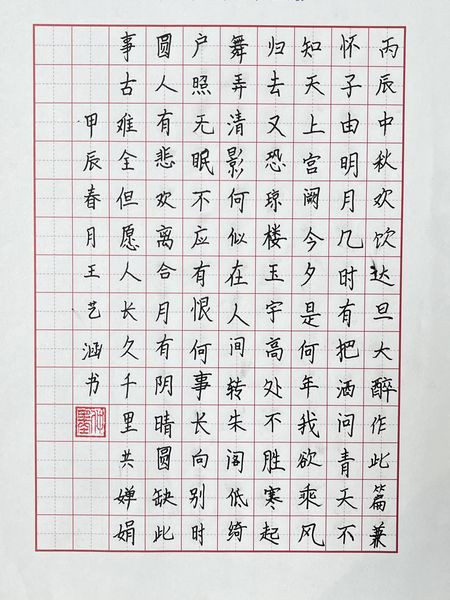 丙辰中秋欢饮达旦大醉作此篇兼
怀子由明月几时有把酒问青天不
知天上宫阙今夕是何年我欲乘风
归去又恐琼楼玉宇高处不胜寒起
舞弄清影何似在人间转朱阁低绮
户照无眠不应有恨何事长向别时
圆人有悲欢离合月有阴晴圆缺此
事古难全但愿人长久千里共婵娟
甲辰春月王艺涵书